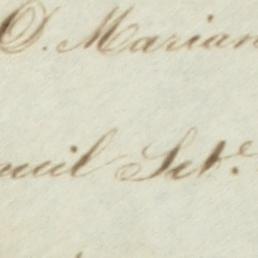 D. Marian
uil Set.e